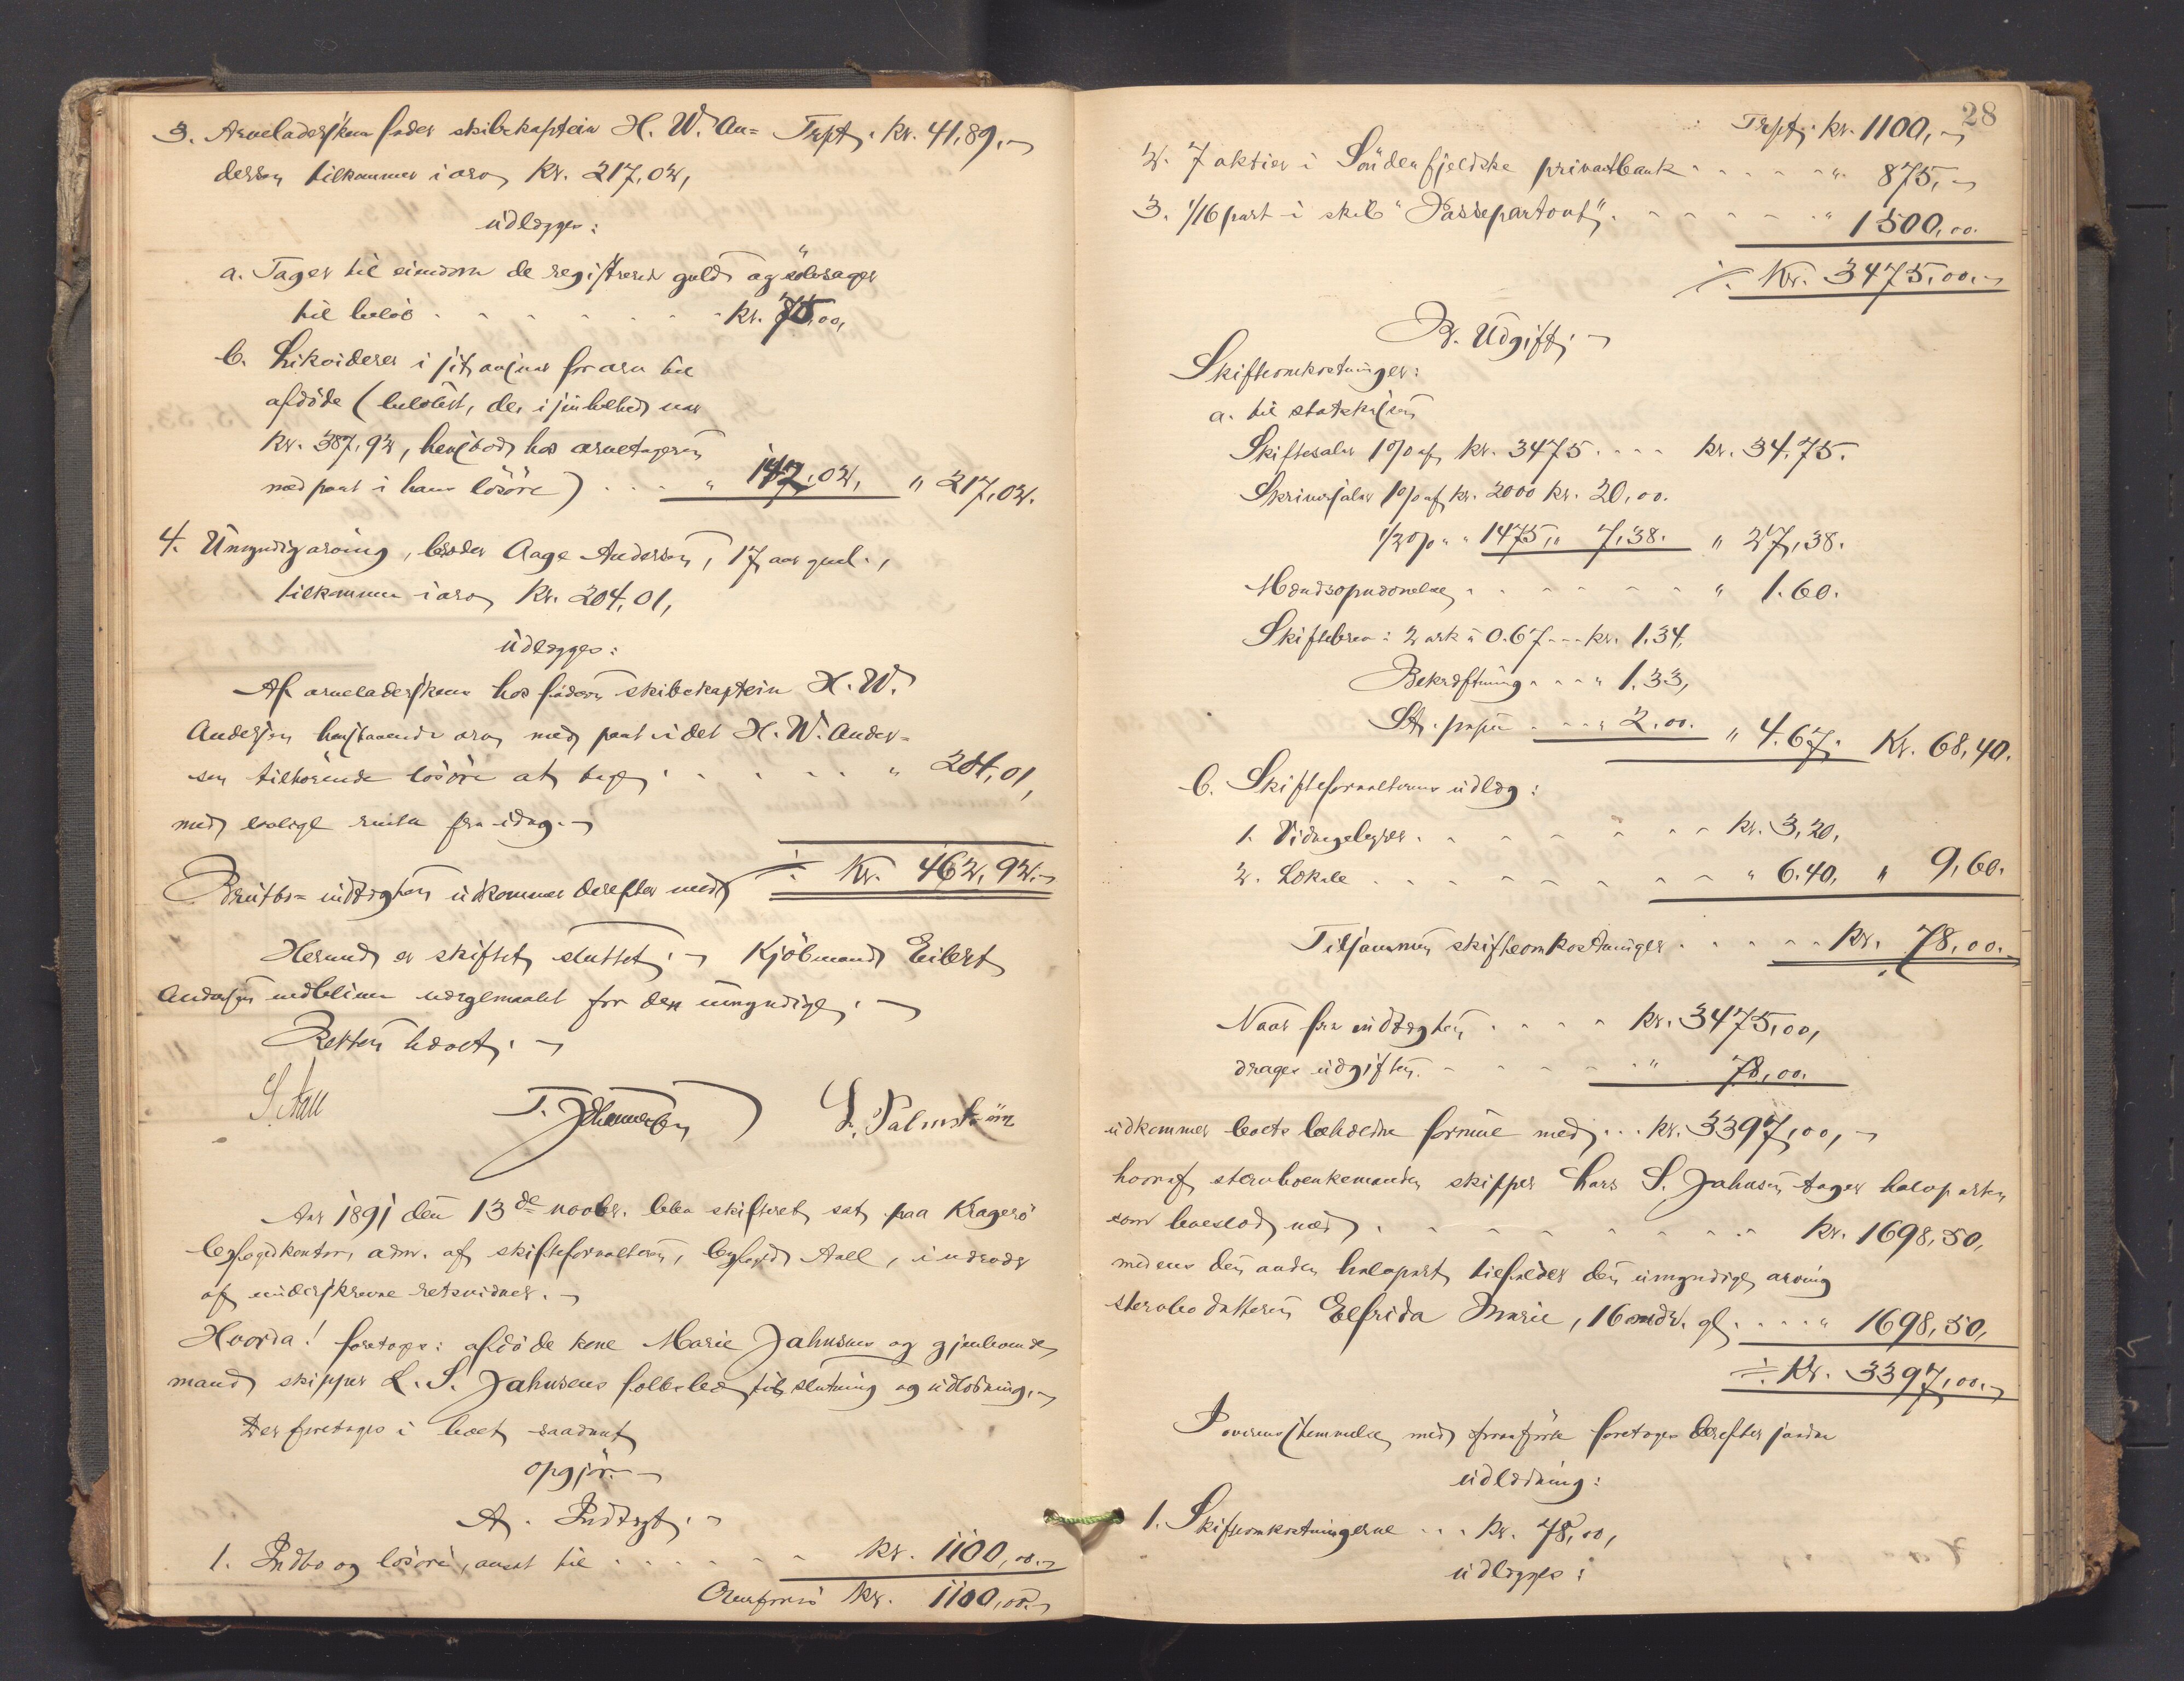 3. Arveladerskens fader skibskaptein H. W. An= Trspt. kr. 41,89.
dersen tilkommer i arv kr. 217,02,
udlægges:
a. Tager til eiendom de registrerede guld og sølvsager
til beløb . . . . . . . kr. 75,00,
b. Likviderer i sit ansvar for arv til
afdøde (beløbet, der i sin helhed var
kr. 387,92, henstod hos arvetageren
med pant i hans løsøre) . . . " 142,02, " 217,02.
4. Umyndig arving, broder Aage Andersen, 17 aar gml.,
tilkommer i arv kr. 204,01,
udlægges:
Af arveladerskens hos faderen skibskaptein H. W.
Andersen henstaaende arv med pant i det H. W. Ander=
sen tilhørende løsøre at tage . . . . . " 204,01,
med lovlige renter fra idag.
Brutto=indtægten udkommer derefter med ÷ Kr. 462,92.
Hermed er skiftet sluttet. Kjøbmand Eilert
Andersen vedbliver værgemaalet for den umyndige.
Retten hævet.
S. Aall T. Johannesen L. Palmström
Aar 1891 den 13de novbr. blev skifteret sat paa Kragerö
byfogedkontor, adm. af skifteforvalteren, byfoged Aall, i nærvær
af underskrevne retsvidner.
Hvorda! foretoges: afdøde kone Marie Jahnsens og gjenlevende
mand skipper L. S. Jahnsens fællesbo til slutning og udlodning.
Der foretages i boet saadant
opgjør.
A. Indtægt.
1. Indbo og løsøre, ansat til . . . . . . kr. 1100,00.
Overføres kr. 1100,00.
28
Trspt. kr. 1100,
2. 7 aktier i Söndenfjeldske privatbank . . . . " 875,
3. 1/16 part i skib "Passepartout" . . . . . " 1500,00.
÷ Kr. 3475,00.
B. Udgift.
Skifteomkostninger:
a. til statskassen
Skiftesalær 1% af kr. 3475 . . . . kr. 34.75.
Skriversalær 1% af kr. 2000 kr. 20,00.
1/2% " " 1475 " 7,38. " 27,38.
Mændsopnævnelse . . . . . . " 1.60.
Skiftebrev: 2 ark à 0.67 . . . kr. 1.34,
Bekræftning . . . " 1.33,
St. papir . . . " 2.00. " 4.67. Kr. 68,40.
b. Skifteforvalterens udlæg:
1. Vidnegebyrer . . . . . . . kr. 3,20,
2. Lokale . . . . . . . . . . " 6.40, " 9,60.
Tilsammen skifteomkostninger . . . . . kr. 78,00.
Naar fra indtægten . . . . kr. 3475,00,
drages udgiften . . . . . " 78,00.
udkommer boets beholdne formue med . . . kr. 3397,00,
hvoraf stervboenkemanden skipper Lars S. Jahnsen tager halvparten
som boeslod med . . . . . . . . . . kr. 1698,50,
medens den anden halvpart tilfalder den umyndige arving
stervbodatteren Elfrida Marie, 16 mdr. gl. . . . . " 1698,50,
÷ Kr. 3397,00.
I overensstemmelse med foranførte foretages derefter saadan
udlodning:
1. Skifteomkostningerne . . . kr. 78,00,
udlægges: